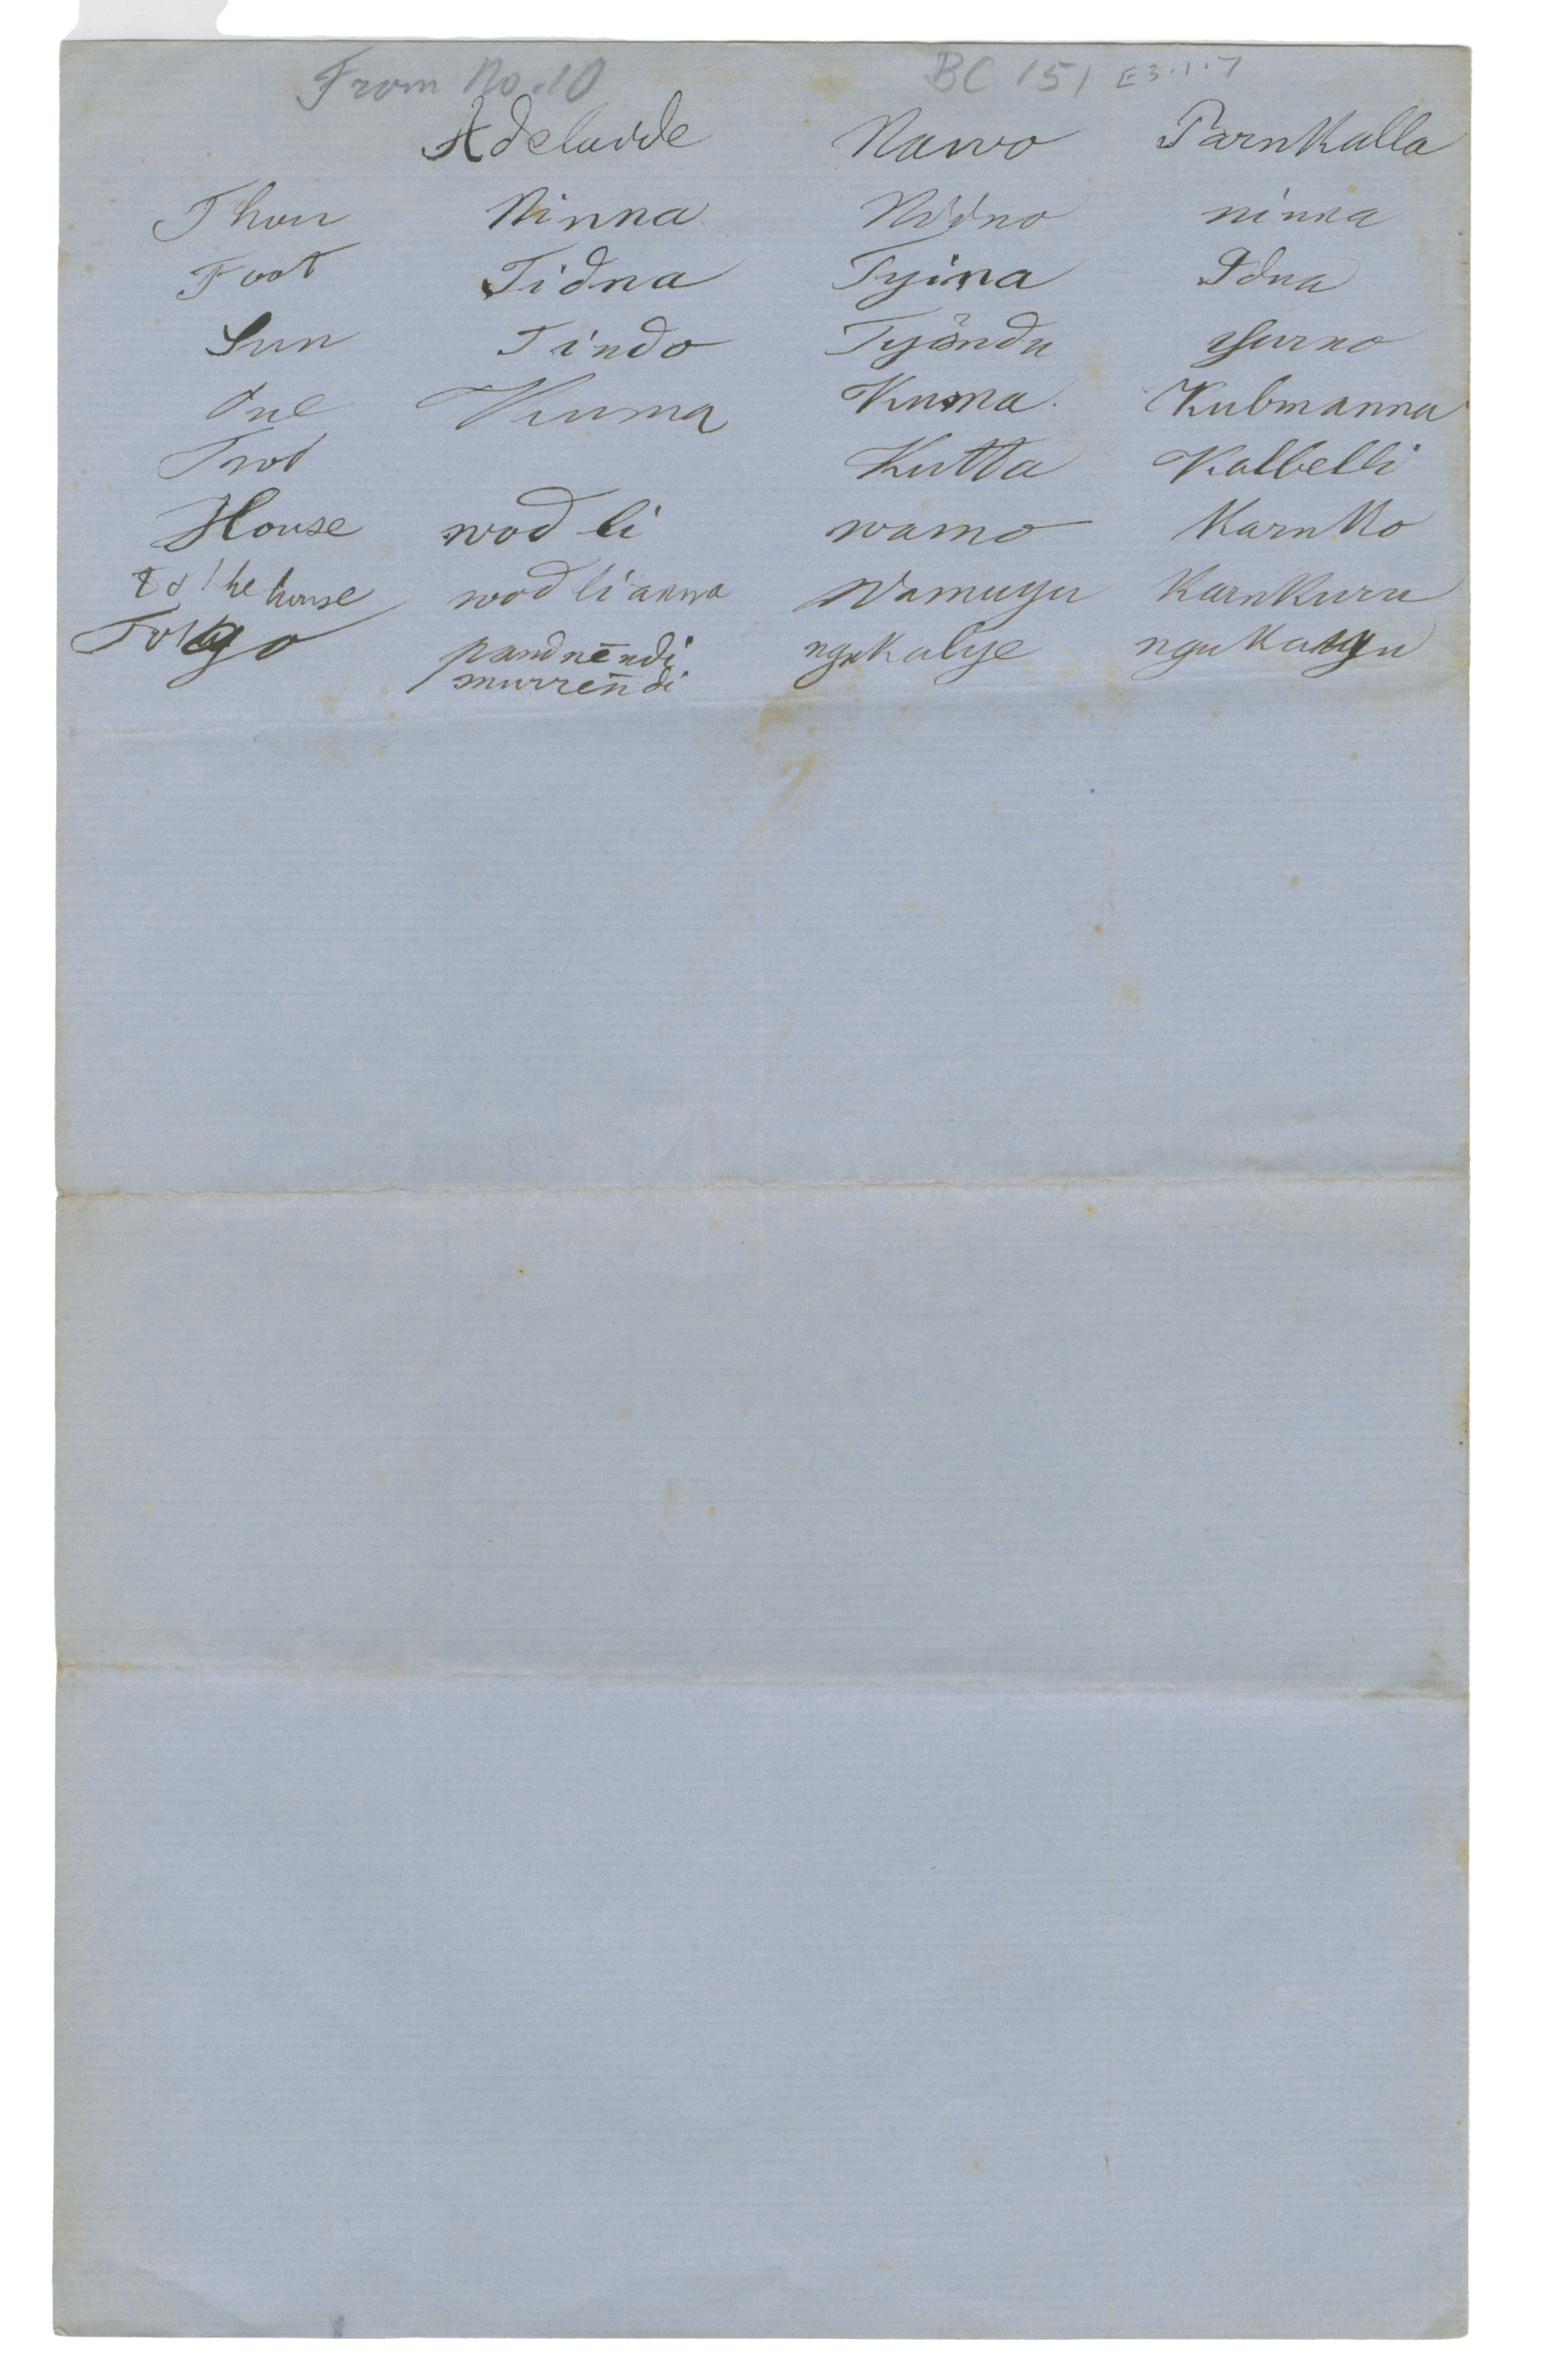 From No. 10 BC 151 E3.1.7
Adelaide Nawo Parnkalla
Thou Ninna ninna
Foot Tidna Tyina Idna
Sun Tindo Tyõndu yurno
One Kuma Kuma. Kubmanna
Kutta Kalbelli
House wodli wamo Karnko
to the house wodlianna Wamuyu Karnkuru
To go padnēndi ngukalye
murrēndi